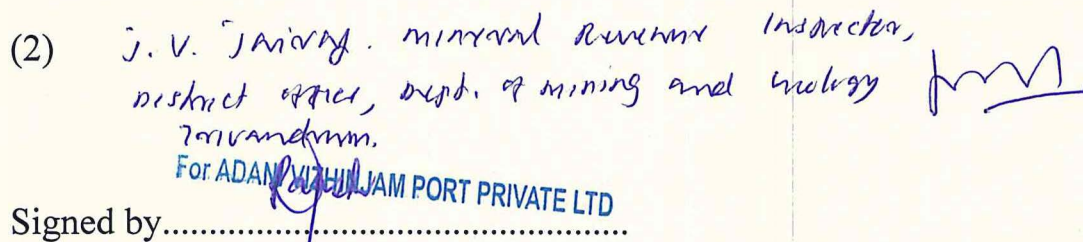 (2) J. V. Jairaj. Mineral Revenue Inspector,
District office, Dept. of mining and Geology
Trivandrum.
For ADANI VIZHINJAM PORT PRIVATE LTD
Signed by..................................................